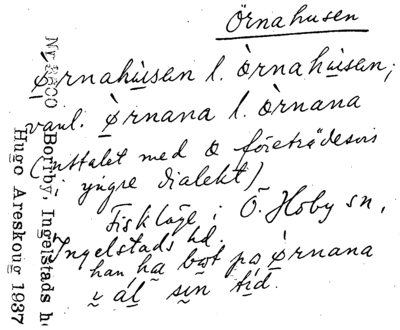 Örnahusen
ǿrnahùsen l. òrnahùsen;
vanl. ǿrnana l. òrnana
(uttalet med o företrädesvis
i yngre dialekt)
Fiskläge i Ö. Hoby sn,
Ingelstads hd.
han ha bot po ørnana
al sin tid.
Borrby, Ingelstads h
Hugo Areskoug 1937